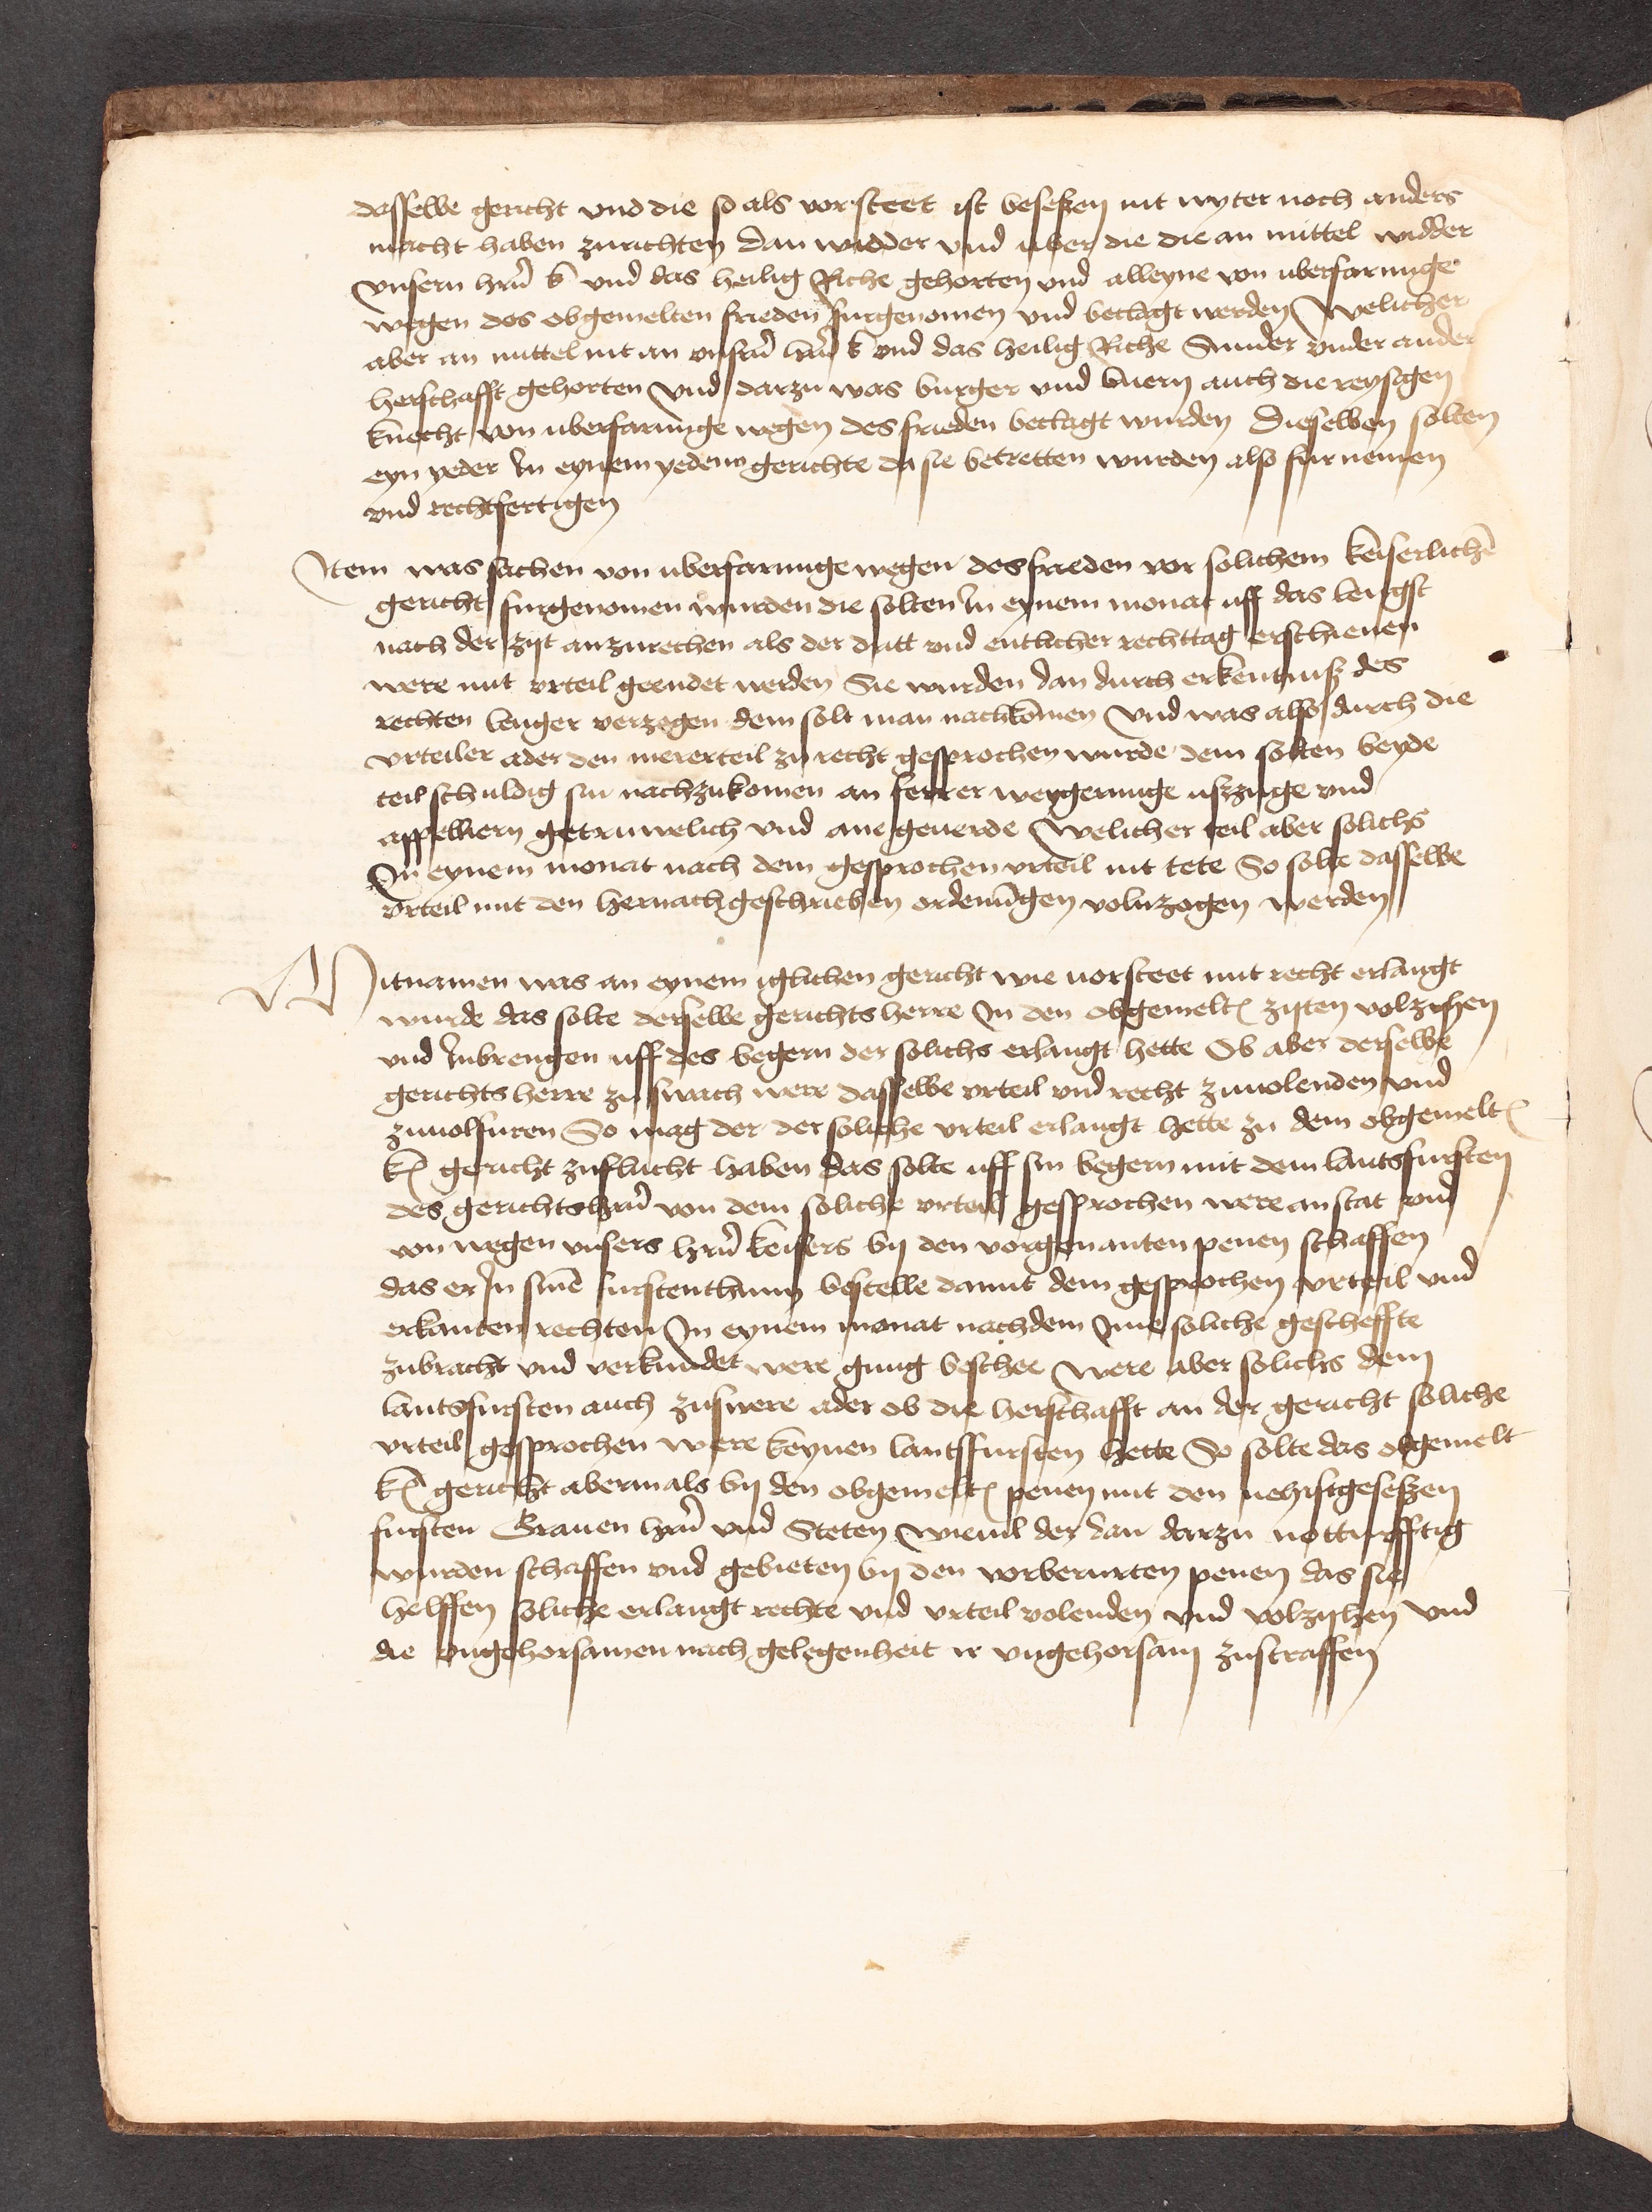 dasselbe gericht vnd die so als vorsteet ist besetzen nit wyter noch anders
macht haben zurichten dan widder vnd uber die die an mittel widder
vnsern hrn̄ k̄ vnd das heilig Riche gehorten vnd alleyne von uberfarunge
wegen des obgemelten frieden furgenomen vnd beclagt werden Welicher
aber an mittel nit an vnsrn̄ hrn̄ k̄ vnd das heilig Riche Sunder vnder ander
herschafft gehorten vnd darzu was burger vnd buern auch die reysigen
knecht von uberfarunge wegen des frieden beclagt wurden Dieselben solten
eyn yeder In eynem yedem gerichte da sie betretten wurden also fur nemen
vnd rechtfertigen
Item was sachen von uberfarunge wegen des frieden vor solichem keiserlichē
gericht furgenomen wurden die solten In eynem monat uff das lengst
nach der zijt anzurechen als der datt vnd entlicher rechttag erschienen
were mit vrteil geendet werden Sie wurden dan durch erkentniß des
rechten lenger verzogen dem solt man nachkōmen Vnd was also durch die
vrteiler ader den mererteil zu recht gesprochen wurde dem solten beyde
teil schuldig sin nachzukomen an ferrer weygerunge ußzuge vnd
appelliern getruwelich vnd ane geuerde Welicher teil aber solichs
In eynem monat nach dem gesprochen vrteil nit tete So solte dasselbe
vrteil mit den hernach geschrieben ordenūgen volnzogen werden
Mitnamen was an eynem iglichen gericht wie uorsteet mit recht erlangt
wurde das solte derselbe gerichts herre In den obgemelt(en) zijten volzihen
vnd Inbrengen uff des begern der solichs erlangt hette Ob aber derselbe
gerichts herre zu swach were dasselbe vrteil vnd recht zuuolenden vnd
zuuolfuren So mag der der soliche vrteil erlangt hette zu dem obgemelt(en)
k(en) gericht zuflucht haben das solte uff sin begern mit dem lantsfursten
des gerichtshrn̄ von dem soliche vrteil gesprochen were an stat vnd
von wegen vnsers hrn̄ keisers bij den vorgenanten penen schaffen
das er In sinē furstenthum bestelle damit dem gesprochen vrteil vnd
erkanten rechten In eynem monat nachdem Ime soliche gescheffte
zubracht vnd verkundet were gnug beschee Were aber solichs dem
lantsfursten auch zuswere ader ob die herschafft an der gericht soliche
vrteil gesprochen were keynen lantsfursten hette So solte das obgemelt
k(en) gericht abermals bij den obgemelt(en) penen mit den nehistgeseßen
fursten Grauen hrn̄ vnd Steten wieuil der dan darzu notturfftig
wurden schaffen vnd gebieten bij den vorberurten penen das sie
helffen soliche erlangt rechte vnd vrteil volenden vnd volzijhen vnd
die vngehorsamen nach gelegenheit ir vngehorsam zustraffen